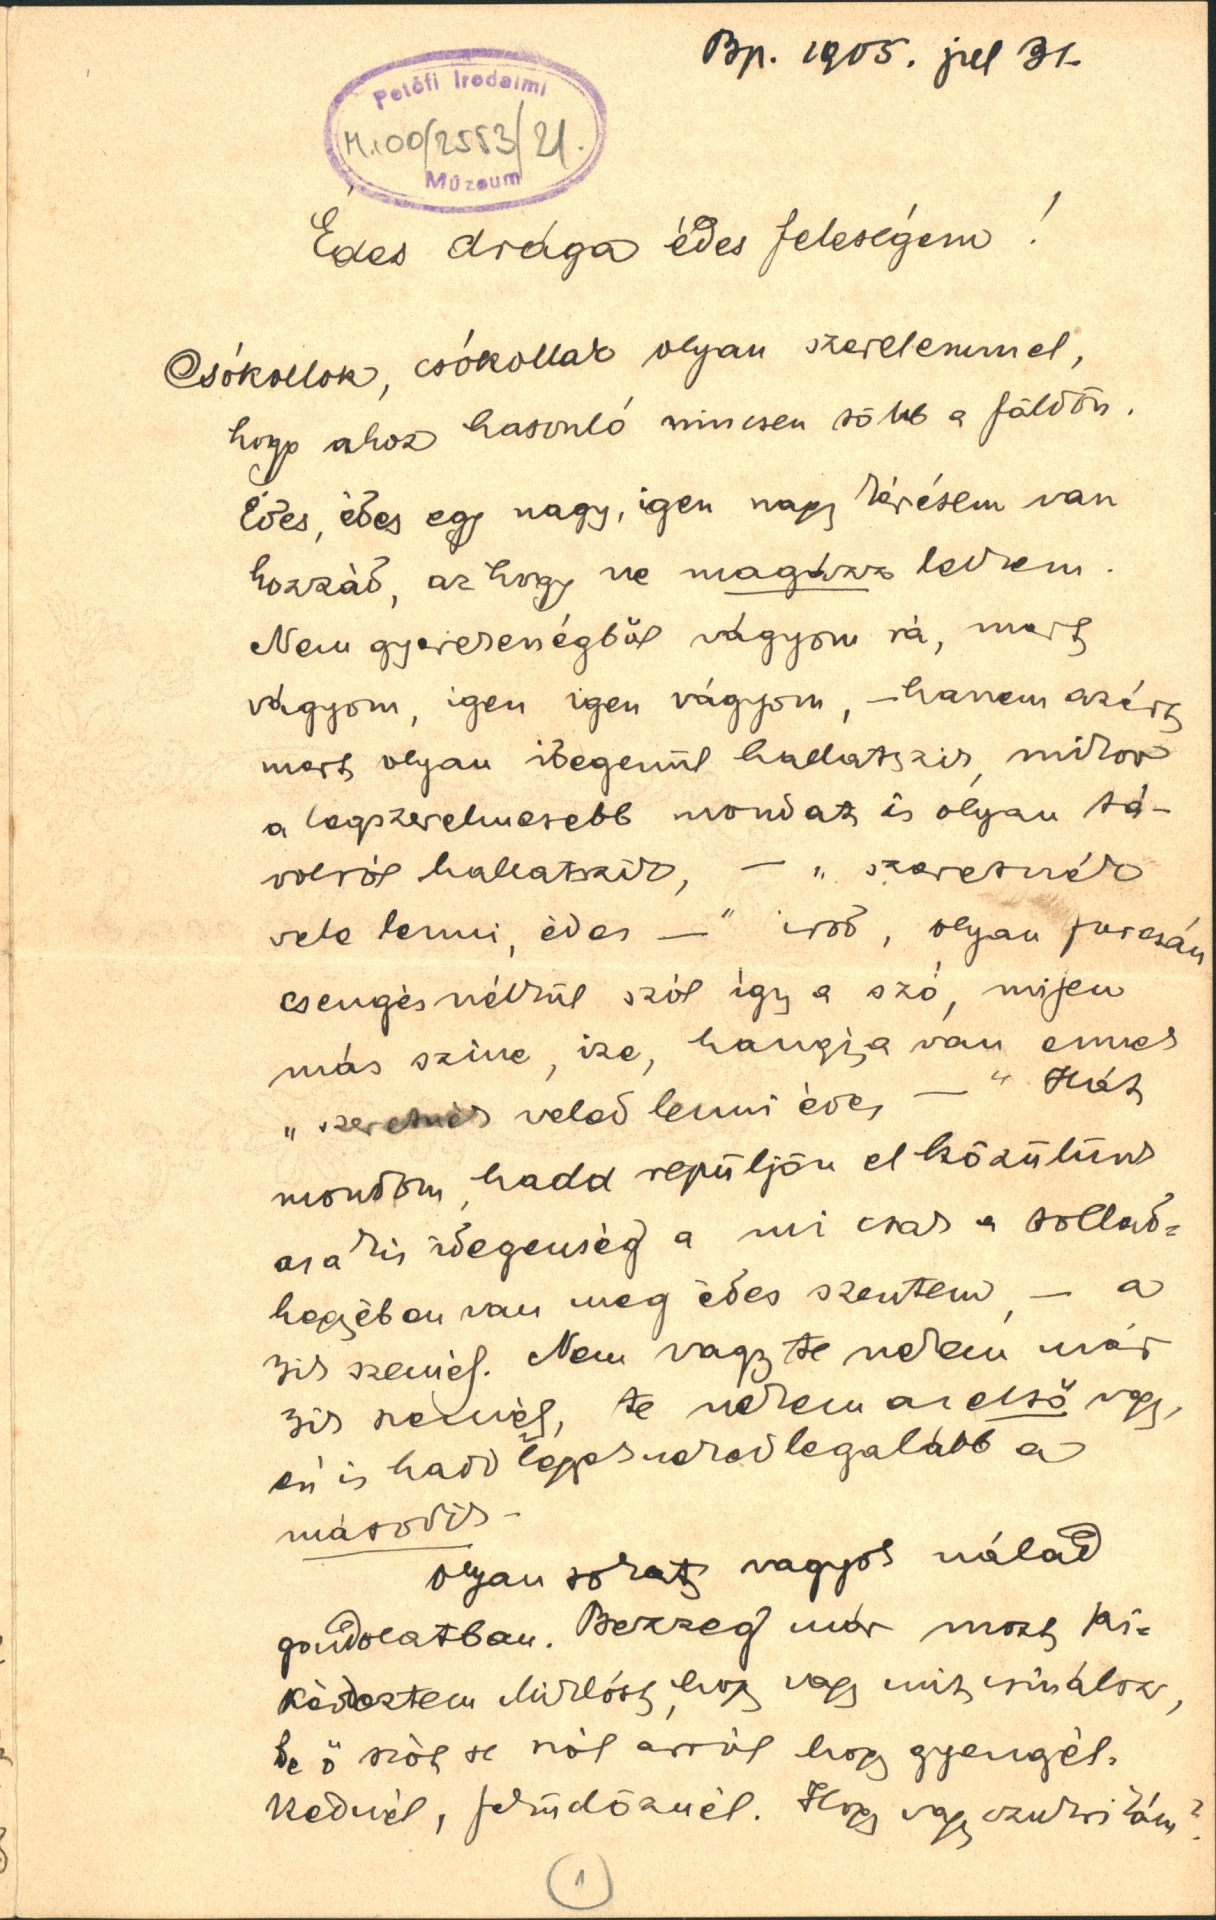 Bp. 1905. jul 31.
Petőfi Irodalmi
M.100/2553/21.
Múzeum
Édes drága édes feleségem!
Csókollok, csókollak olyan szerelemmel,
hogy ahoz hasonló nincsen több a földön.
Édes, édes egy nagy, igen nagy kérésem van
hozzád, az hogy ne magázz lelkem.
Nem gyerekességből vágyom rá, mert
vágyom, igen igen vágyom, – hanem azért
mert olyan idegenül hallatszik, mikor
a legszerelmesebb mondat is olyan tá-
volról hallatszik, – „szeretnék
vele lenni, édes –" irod, olyan furcsán
csengés nélkül szól így a szó, mijen
más szine, ize, hangja van ennek
„szeretnék veled lenni édes –" Hát
mondom, hadd repüljön el közülünk
az a kis idegenség a mi csak a tollad=
hegyében van meg édes szentem, – a
3ik személy. Nem vagy te nekem már
3ik személy, te nekem az első vagy,
én is hadd legyek neked legalább a
második –
olyan sokat vagyok nálad
gondolatban. Bezzeg már most ki=
kérdeztem Miklóst, hogy vagy mit csinálsz,
de ő szót se szól arról hogy gyengél=
kednél, fekündöznél. Hogy vagy czukrikám?
1